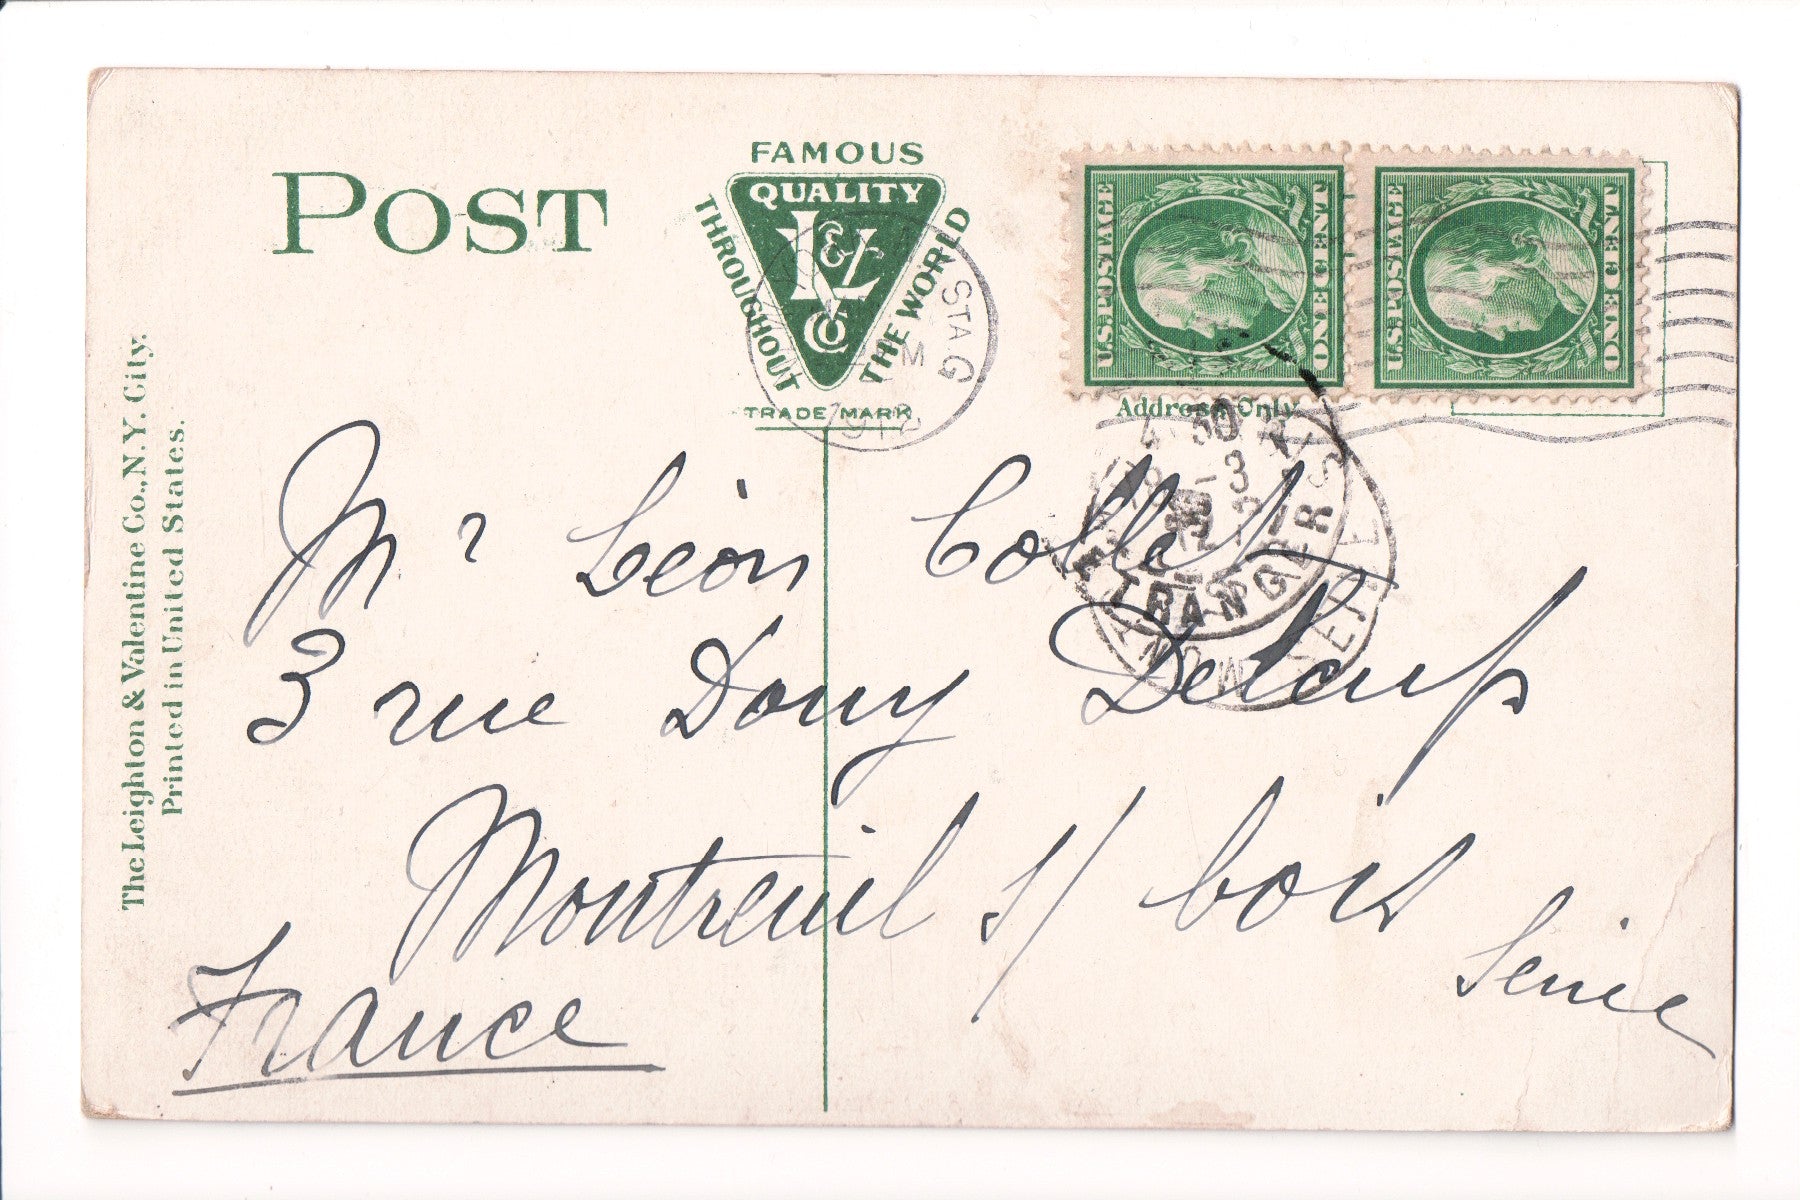 POST
FAMOUS
QUALITY
L&V
Co
THROUGHOUT
THE WORLD
TRADE MARK
STA G
1912
U.S. POSTAGE
ONE CENT
U.S. POSTAGE
ONE CENT
Address Only
The Leighton & Valentine Co., N.Y. City.
Printed in United States.
4 30
18 - 3
12
ETRANGERS
SEINE
Mr Léon Collet
3 rue Douy Delcup
Montreuil s/ bois
Seine
France